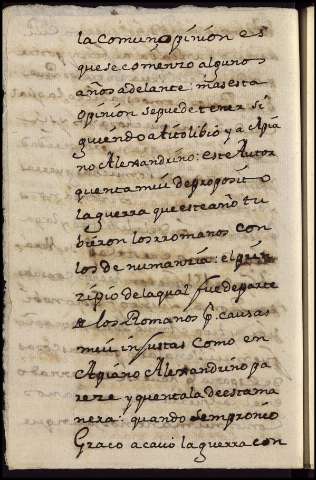 la comun opinion es
que se comenzo algunos
años adelante: mas esta
opinion se puede tener si
guiendo a titolibio y a Apia
no Alexandrino: este Autor
quenta mui de proposito
la guerra que este año tu
bieron los rromanos con
los de numanzia: el prin
zipio de la qual fue de parte
de los Romanos p. causas
mui injustas como en
Apiano Alexandrino pa
reze y quentala de esta ma
nera: quando Sempronio
Graco acavó la guerra con